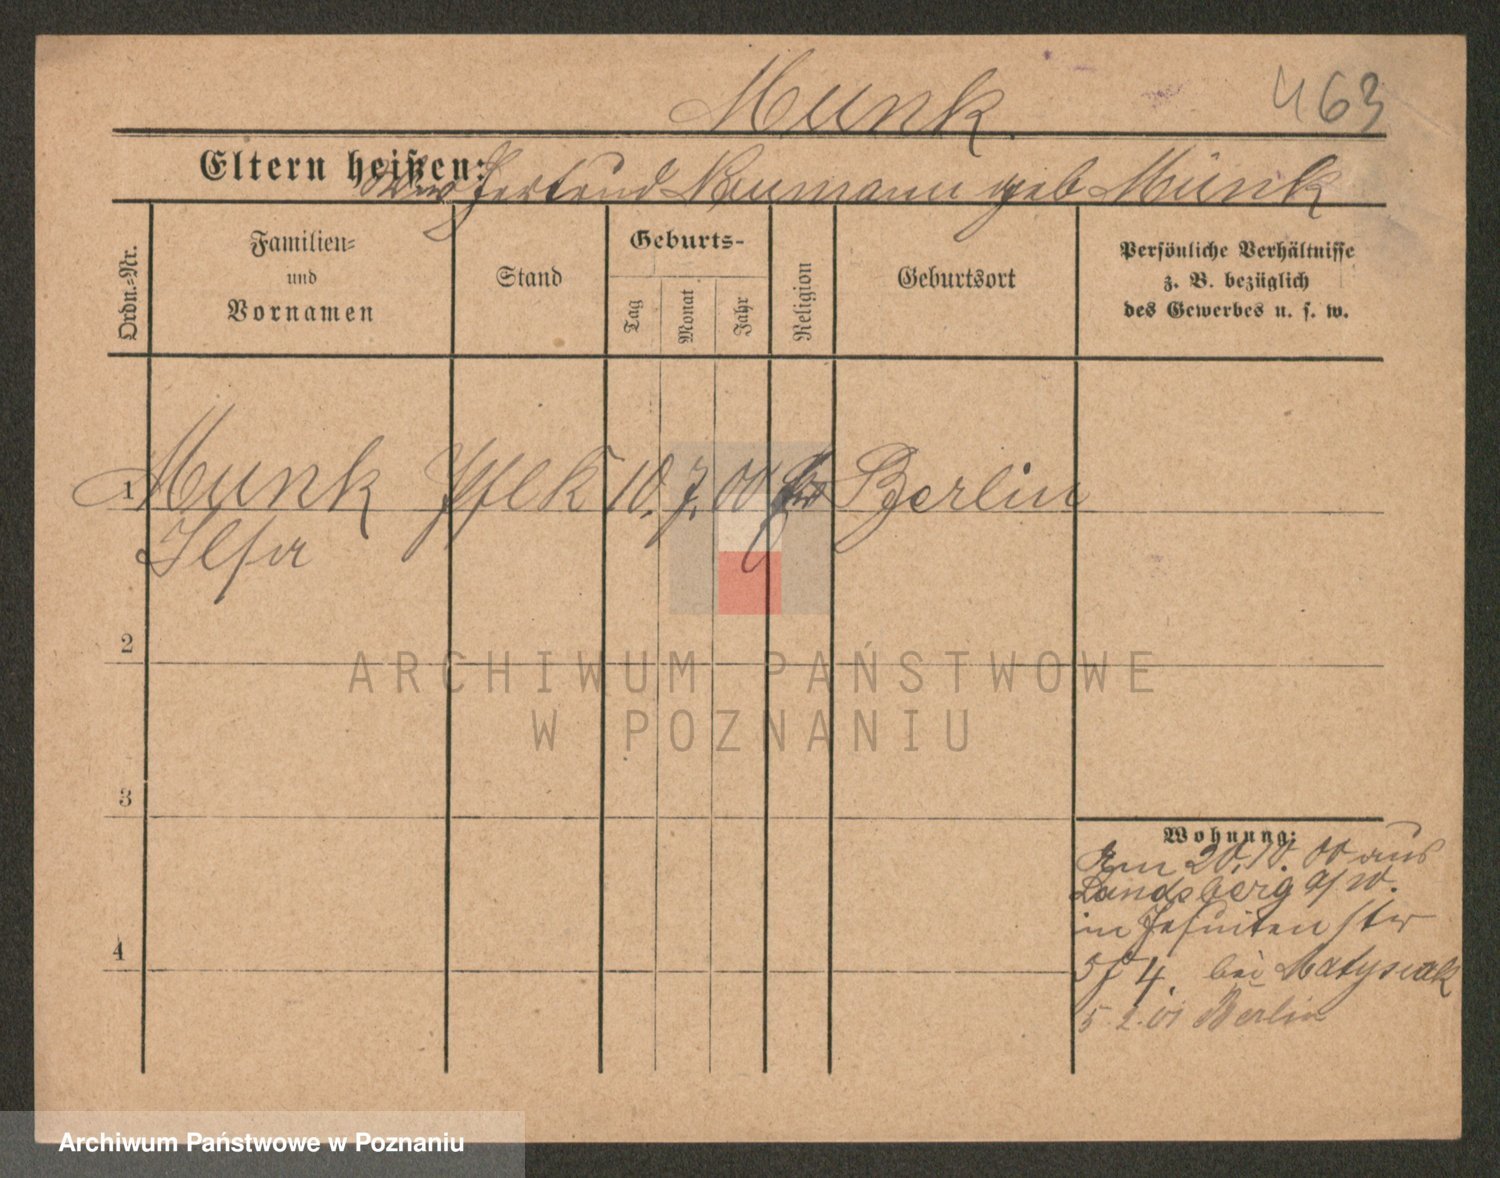 Munk
463
Eltern heißen:
Gertrud Neumann geb Munk
Ordn.=Nr.
Familien=
und
Vornamen
Stand
Geburts-
Tag
Monat
Jahr
Religion
Geburtsort
Persönliche Verhältnisse
z. B. bezüglich
des Gewerbes u. s. w.
1
Munk Pflk 10. 7. 00 Berlin
Ilsa
2
ARCHIWUM PAŃSTWOWE
W POZNANIU
3
Wohnung:
Am 20.10.00 aus
Landsberg a/W.
in Jesuiten str
5 4. bei Matysiak
4
5.2.01 Berlin
Archiwum Państwowe w Poznaniu